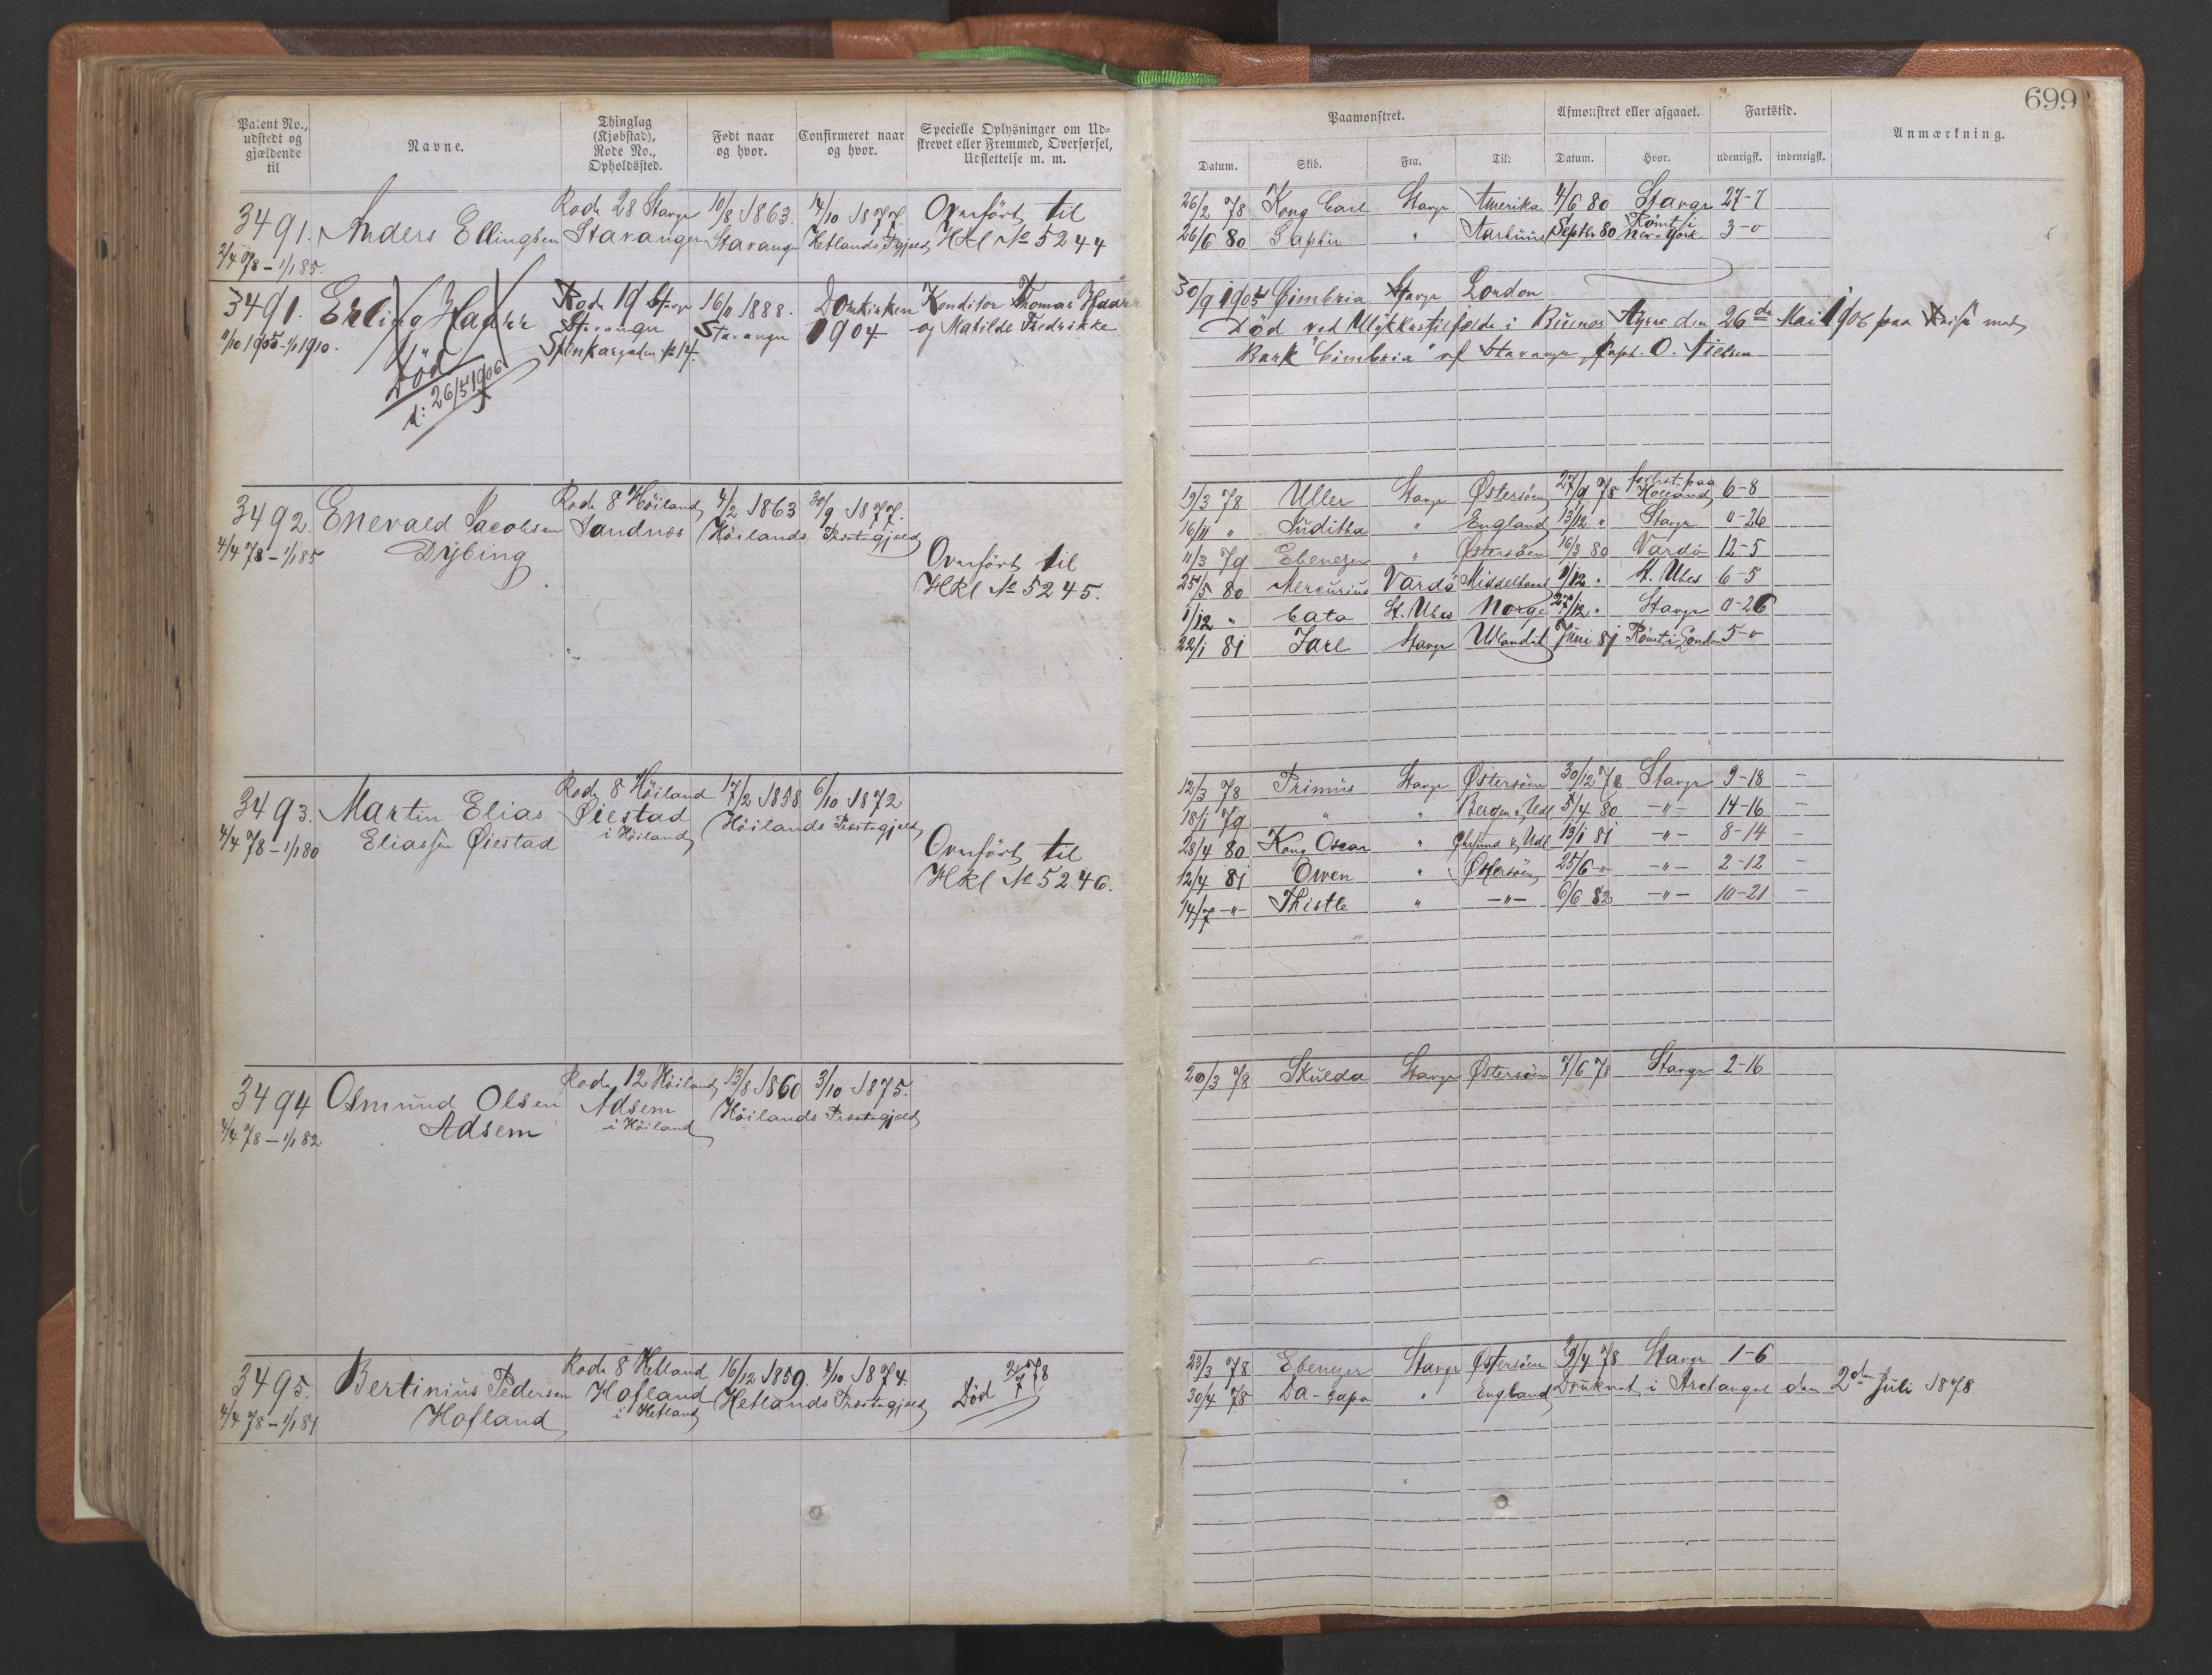 699
Patent No., udstedt og gjældende til
Navne.
Thinglag (Kjøbstad), Rode No., Opholdssted.
Født naar og hvor.
Confirmeret naar og hvor.
Specielle Oplysninger om Udskrevet eller Fremmed, Overførsel, Udslettelse m. m.
Paamønstret.
Afmønstret eller afgaaet.
Fartstid.
Anmærkning.
Datum. Skib. Fra. Til: Datum. Hvor. udenrigsk. indenrigsk.
3491. Anders Ellingsen
2/4 78 – 1/1 85.
Rode 28 Stavgr
Stavanger
10/8 1863.
Stavanger
14/10 1877.
Hetlands Prgjeld
Overført til
Hkl № 5244
26/2 78 Kong Carl Stavgr Amerika 4/6 80 Stavgr 27-7
26/6 80 Saphir " Aarhuus Septbr 80 Rømt i New-York 3-0
3491. Erling Haahr
11/10 1905 – 1/1 1910.
Død
d: 26/5 1906
Rode 19 Stavgr
Stavanger
Stenkargaden № 14.
16/11 1888.
Stavanger
Domkirken
1904.
Konditor Thomas Haahr
og Mathilde Fredrikke
30/9 1905 Cimbria Stavgr London
Død ved Ulykkestilfælde i Buenos Ayres den 26de Mai 1906 paa Reise med
Bark "Cimbria" af Stavanger, Capt. O. Nielsen
3492. Enevald Jacobsen
Dybing
4/4 78 – 1/1 85
Rode 8 Høiland
Sandnæs
4/2 1863
30/9 1877.
Høilands Præstegjeld
Overført til
Hkl № 5245.
19/3 78 Uller Stavgr Østersøen 27/9 78 forlist paa Holland 6-8
16/11 " Juditha " England 13/12 " Stavgr 0-26
11/3 79 Ebenezer " Østersøen 16/3 80 Vardø 12-5
25/5 80 Mercurius Vardø Middelhavet 1/12 " St. Ubes 6-5
1/12 " Cato St. Ubes Norge 27/12 " Stavgr 0-26
22/1 81 Jarl Stavgr Udlandet Juni 81 Rømt i London 5-0
3493. Martin Elias
Eliassen Øiestad
4/4 78 – 1/1 80
Rode 8 Høiland
Øiestad
i Høiland
17/2 1858
6/10 1872
Høilands Præstegjeld
Overført til
Hkl № 5246.
12/3 78 Primus Stavgr Østersøen 30/12 78 Stavgr 9-18 –
18/1 79 " " Bergen & Udl 5/4 80 –"– 14-16 –
28/4 80 Kong Oscar " & Udl 13/1 81 –"– 8-14 –
12/4 81 Owen " Østersøen 25/6 –"– –"– 2-12 –
14/7 –"– Thistle " –"– 6/6 82 –"– 10-21 –
3494 Osmund Olsen
Adsem
4/4 78 – 1/1 82
Rode 12 Høiland
Adsem
i Høiland
13/8 1860
3/10 1875.
Høilands Præstegjeld
20/3 78 Skulda Stavgr Østersøen 7/6 78 Stavgr 2-16
3495. Bertinius Pedersen
Hofland
4/4 78 – 1/1 81
Rode 8 Hetland
Hofland
i Hetland
16/12 1859.
4/10 1874.
Hetlands Præstegjeld
Død 2/7 78
23/3 78 Ebenezer Stavgr Østersøen 29/4 78 Stavgr 1-6
30/4 78 Da-Capo " England Druknet i Archangel den 2den Juli 1878